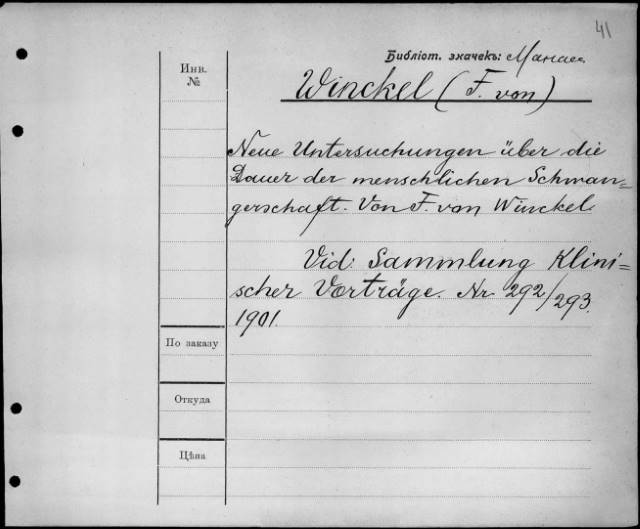 41
Библіот. значекъ:
Инв.
№
Winckel (F. von)
Neue Untersuchungen über die
Dauer der menschlichen Schwan-
gerschaft. Von F. von Winckel.
Vid: Sammlung Klini-
scher Vorträge. Nr 292/293.
1901.
По заказу
Откуда
Цѣна